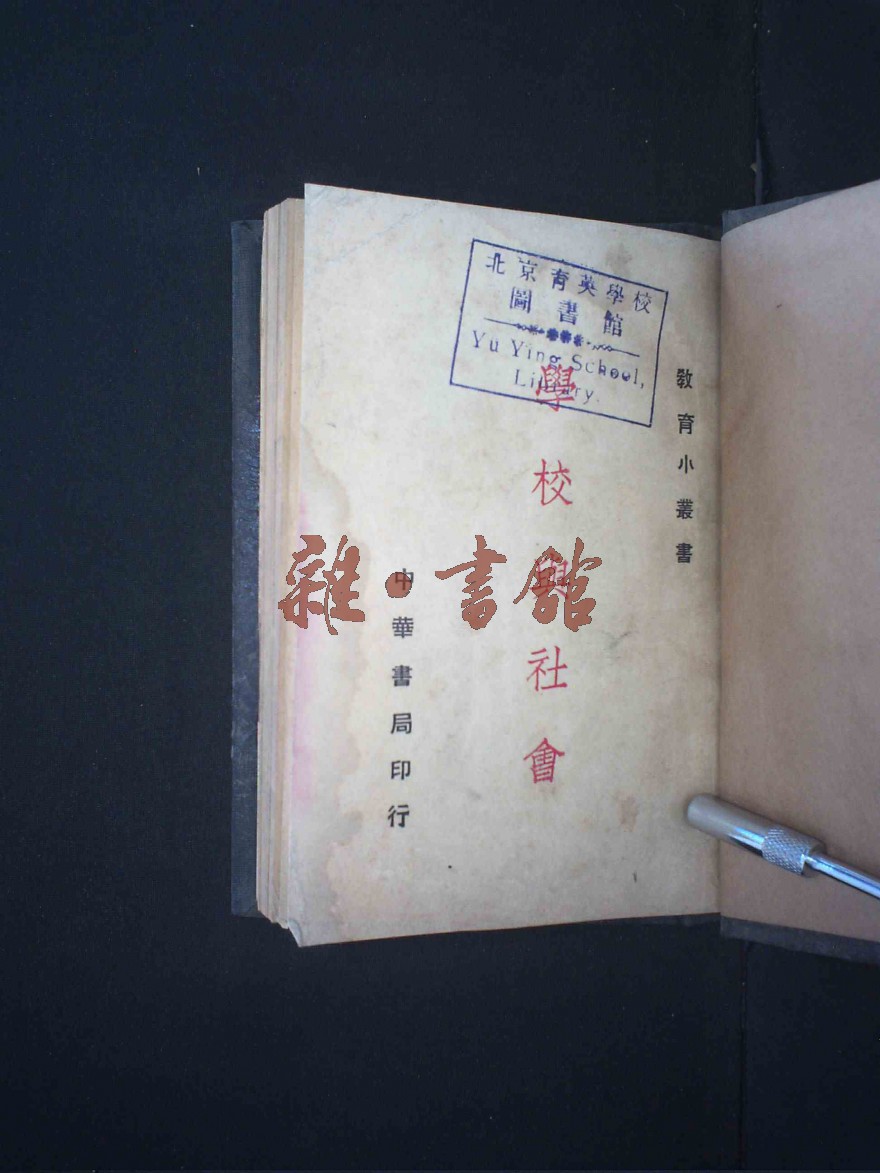 北京育英學校
圖書館
Yu Ying School,
Library.
教育小叢書
學校與社會
中華書局印行
雜·書館